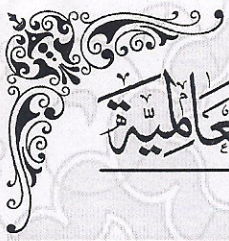 عَالَمِيَّة